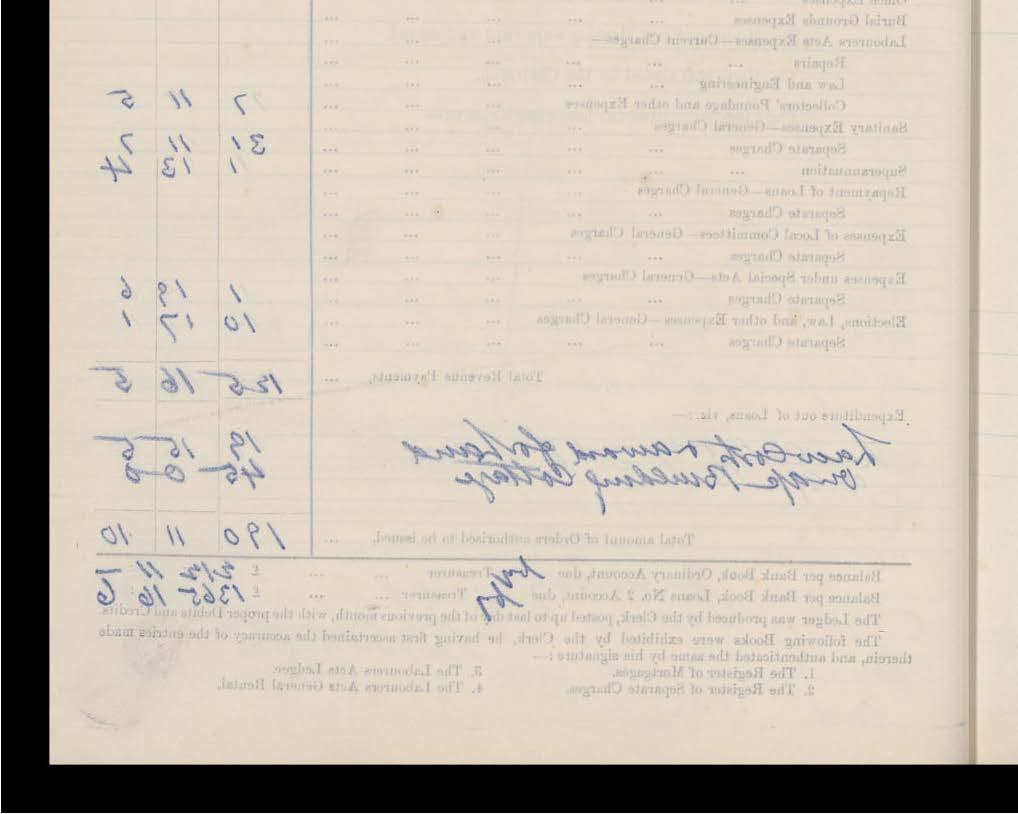 Office Expenses
Burial Grounds Expenses
Labourers Acts Expenses—Current Charges—
Repairs
Law and Engineering
Collectors' Poundage and other Expenses 7 11 5
Sanitary Expenses—General Charges
Separate Charges 31 11 7
Superannuation 1 13 4
Repayment of Loans—General Charges
Separate Charges
Expenses of Local Committees—General Charges
Separate Charges
Expenses under Special Acts—General Charges
Separate Charges 1 19 6
Elections, Law, and other Expenses—General Charges 10 17 1
Separate Charges
Total Revenue Payments, 125 16 5
Expenditure out of Loans, viz.:—
Law Costs & award for Land 19 15 5
Building Cottage 45 0 0
Total amount of Orders authorised to be issued. 190 11 10
Balance per Bank Book, Ordinary Account, due by Treasurer £
Balance per Bank Book, Loans No. 2 Account, due by Treasurer £ 1365 16 6
The Ledger was produced by the Clerk, posted up to last day of the previous month, with the proper Debits and Credits.
The following Books were exhibited by the Clerk, he having first ascertained the accuracy of the entries made
therein, and authenticated the same by his signature:—
1. The Register of Mortgages. 3. The Labourers Acts Ledger.
2. The Register of Separate Charges. 4. The Labourers Acts General Rental.